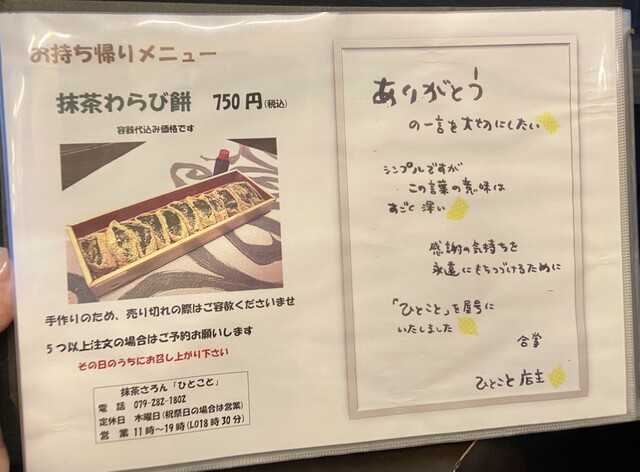 お持ち帰りメニュー
抹茶わらび餅 750円(税込)
容器代込み価格です
手作りのため、売り切れの際はご容赦くださいませ
5つ以上注文の場合はご予約お願いします
その日のうちにお召し上がり下さい
抹茶さろん「ひとこと」
電話 079-282-1802
定休日 木曜日(祝祭日の場合は営業)
営業 11時～19時(LO18時30分)
ありがとう
の一言を大切にしたい
シンプルですが
この言葉の意味は
すごく深い
感謝の気持ちを
永遠にもちつづけるために
「ひとこと」を屋号に
いたしました
合掌
ひとこと店主